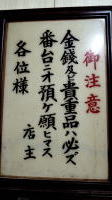 御注意
金銭及貴重品ハ必ズ
番台ニオ預ケ願ヒマス
店主
各位様